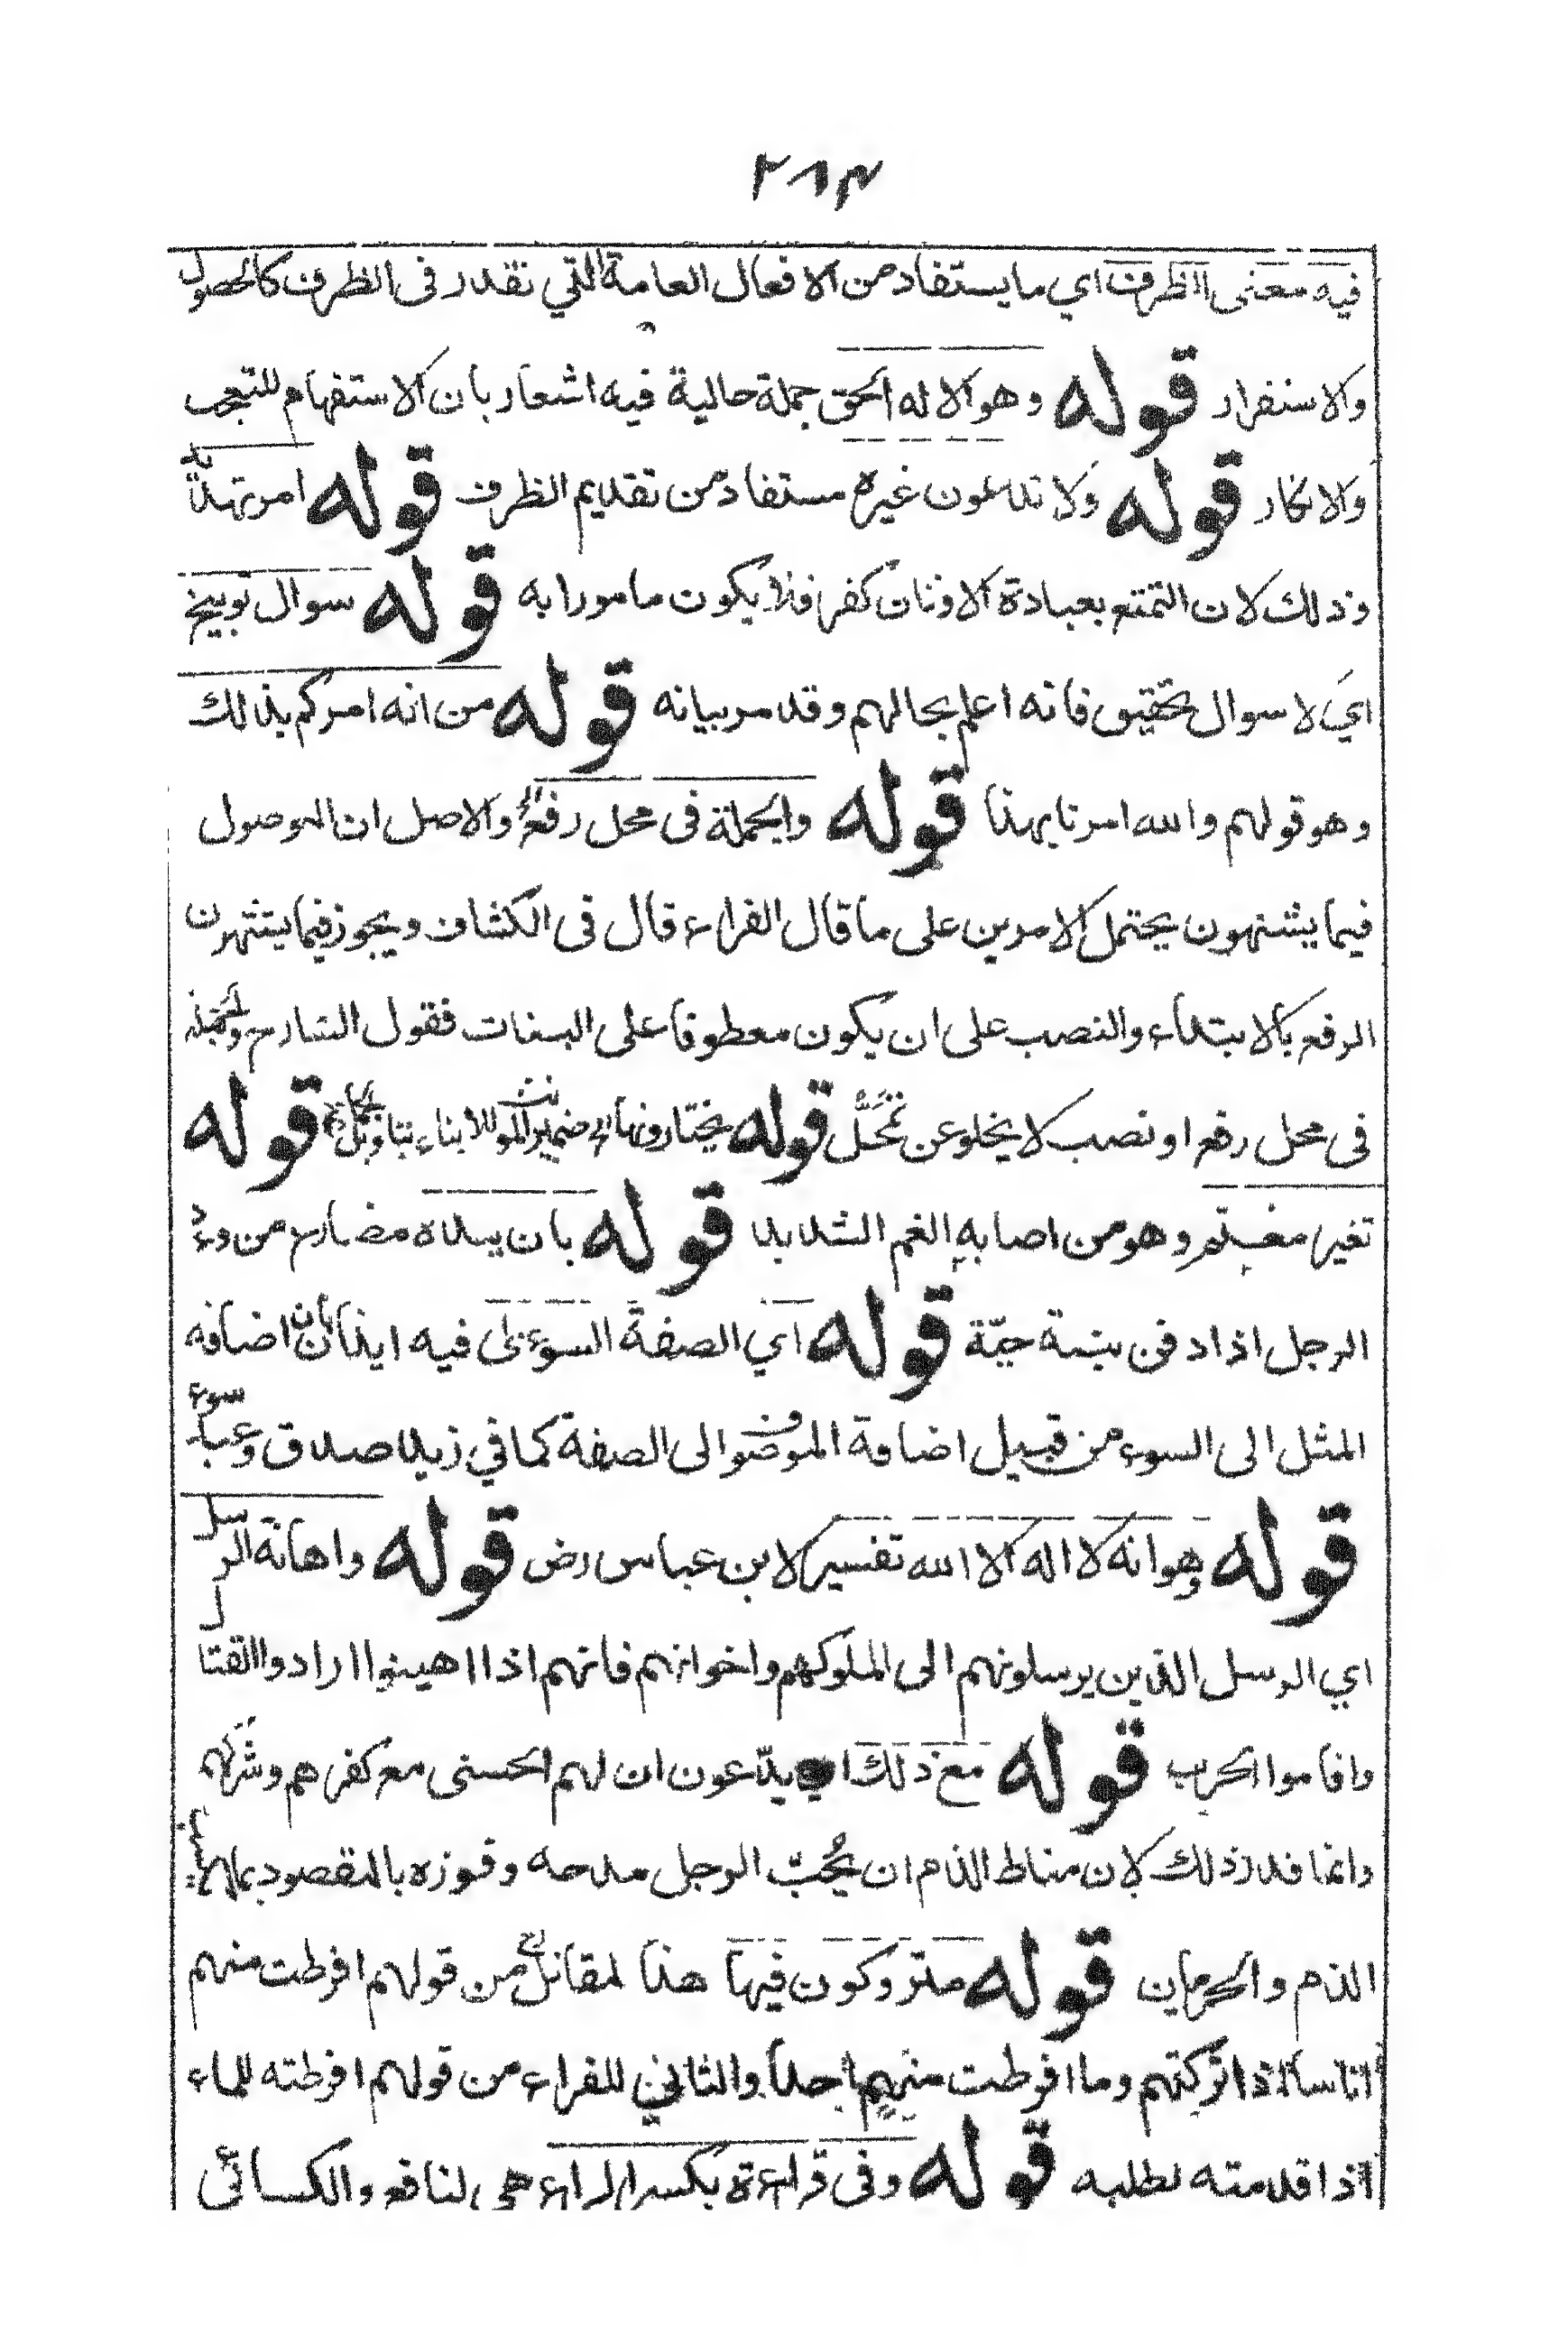 ٢٨٣
فيه معنى الظرف اي ما يستفاد من الافعال العامة التي تقدر فى الظرف كالحصول
والاستقرار قوله وهو الاله الحق جملة حالية فيه اشعار بان الاستفهام للتعجب
والانكار قوله ولا تدعون غيره مستفاد من تقديم الظرف قوله امر تهديد
وذلك لان التمتع بعبادة الاوثان كفر فلا يكون مامورا به قوله سوال توبيخ
اي لا سوال تحقيق فانه اعلم بحالهم وقد مر بيانه قوله من انه امركم بذالك
وهو قولهم والله امرنا بهذا قوله والجملة فى محل رفع الخ والاصل ان الموصول
فيما يشتهون يحتمل الامرين على ما قال الفراء قال فى الكشاف ويجوز فيما يشتهون
الرفع بالابتداء والنصب على ان يكون معطوفا على البنات فقول الشارح والجملة
فى محل رفع او نصب لا يخلو عن تمحّل قوله يختارونها اي ضمير المونث للابناء بتاويل قوله
تغير مغتم وهو من اصابه الغم الشديد قوله بان يئده مضارع من وءد
الرجل اذا دفن بنته حيّة قوله اي الصفة السوءى فيه ايذان بان اضافة
المثل الى السوء من قبيل اضافة الموصوف الى الصفة كما في زيد صدق وعبد سوء
قوله وهو انه لا اله الا الله تفسير لابن عباس رض قوله واهانة الرسل
اي الرسل الذين يرسلونهم الى الملوكهم واخوانهم فانهم اذا اهينوا ارادوا القتال
واقاموا الحرب قوله مع ذلك اي يدّعون ان لهم الحسنى مع كفرهم وشركهم
وانما قدر ذلك لان مناط الذم ان يُحِبّ الرجل مدحه وفوزه بالمقصود
الذم والحرمان قوله متروكون فيها هذا لمقاتل من قولهم افرطت منهم
اناسا اذا تركتهم وما افرطت منهم احدا والثاني للفراء من قولهم افرطته للماء
اذا قدمته لطلبه قوله وفى قراءة بكسر الراء هى لنافع والكسائى